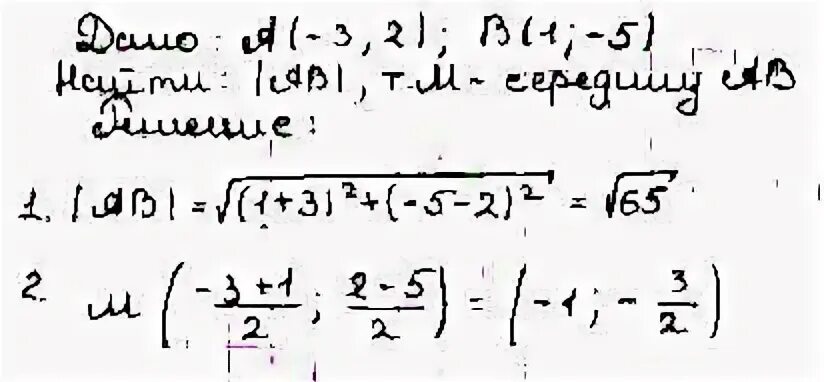 Дано: A(-3, 2); B(1; -5)
Найти: |AB|, т. M - середину AB
Решение:
1. |AB| = √((1+3)²+(-5-2)²) = √65
2. M ((-3+1)/2; (2-5)/2) = (-1; -3/2)